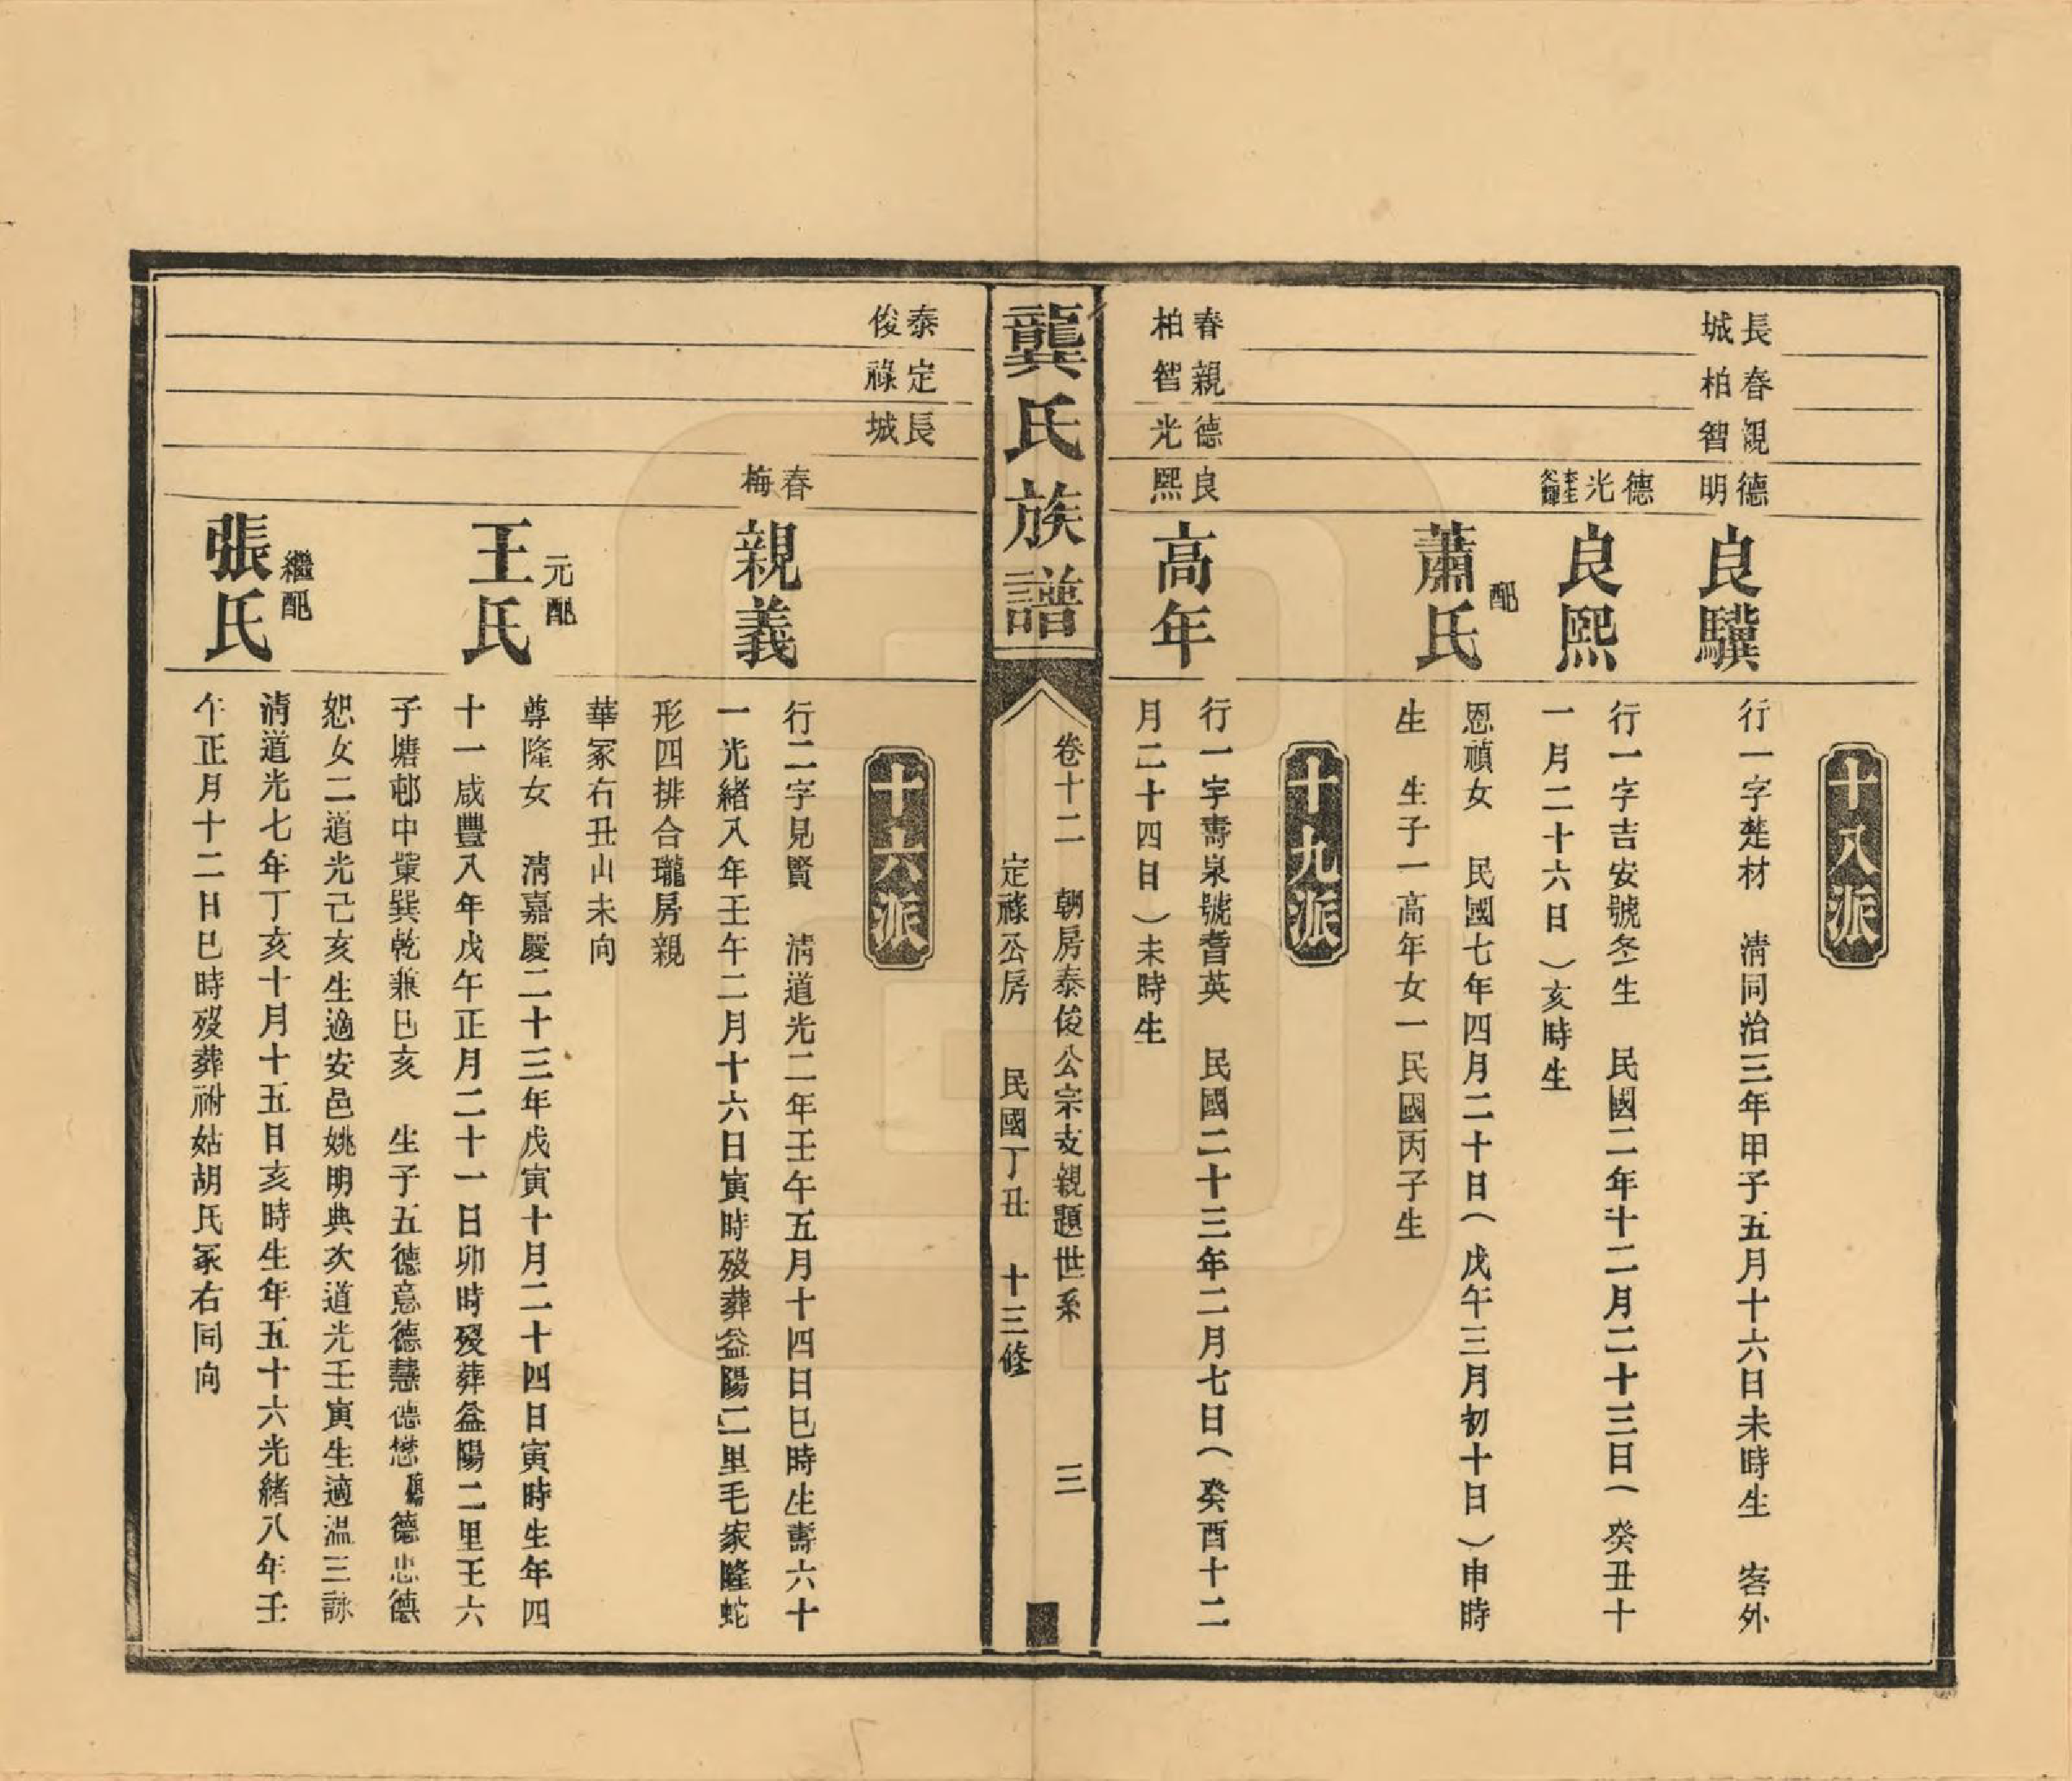 十八派
長春親德
城柏智明
良驥
行一字楚材　清同治三年甲子五月十六日未時生　客外
德
光
良熙
行一字吉安號冬生　民國二年十二月二十三日（癸丑十
一月二十六日）亥時生
配
蕭氏
恩禎女　民國七年四月二十日（戊午三月初十日）申時
生　生子一高年女一民國丙子生
十九派
春親德良
柏智光熙
高年
行一字壽泉號耆英　民國二十三年二月七日（癸酉十二
月二十四日）未時生
龔氏族譜
卷十二　朝房泰俊公宗支親題世系　三
定祿公房　民國丁丑　十三修
十六派
泰定長
俊祿城
春
梅
親義
行二字見賢　清道光二年壬午五月十四日巳時生壽六十
一光緒八年壬午二月十六日寅時歿葬益陽二里毛家隆蛇
形四排合瓏房親
華冢右丑山未向
元配
王氏
尊隆女　清嘉慶二十三年戊寅十月二十四日寅時生年四
十一咸豐八年戊午正月二十一日卯時歿葬益陽二里王六
子塘邨中業巽乾兼巳亥　生子五德意德慧德懋德忠德
恕女二道光己亥生適安邑姚明典次道光壬寅生適溫三詠
繼配
張氏
清道光七年丁亥十月十五日亥時生年五十六光緒八年壬
午正月十二日巳時歿葬祔姑胡氏冢右同向